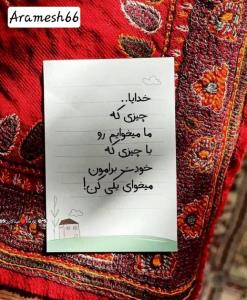 Aramesh66
خدایا..
چیزی که
ما میخوایم رو
با چیزی که
خودت برامون
میخوای یکی کن!